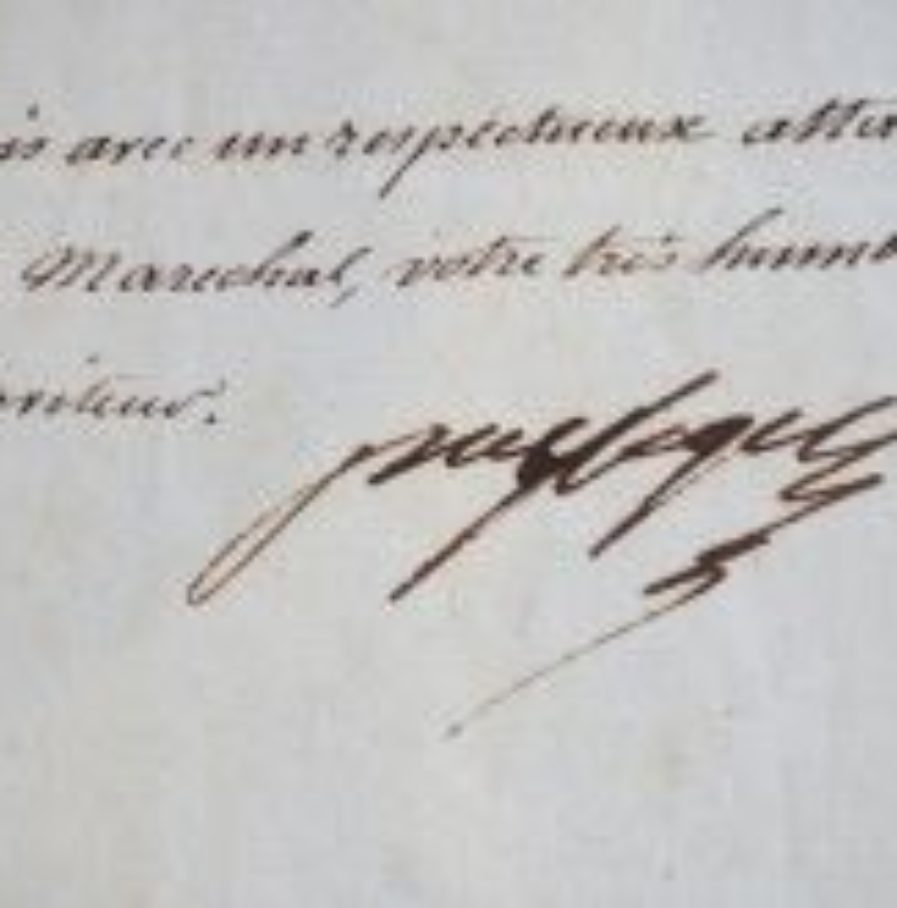 is avec un respectueux atta
Maréchal, votre très humb
rviteur.